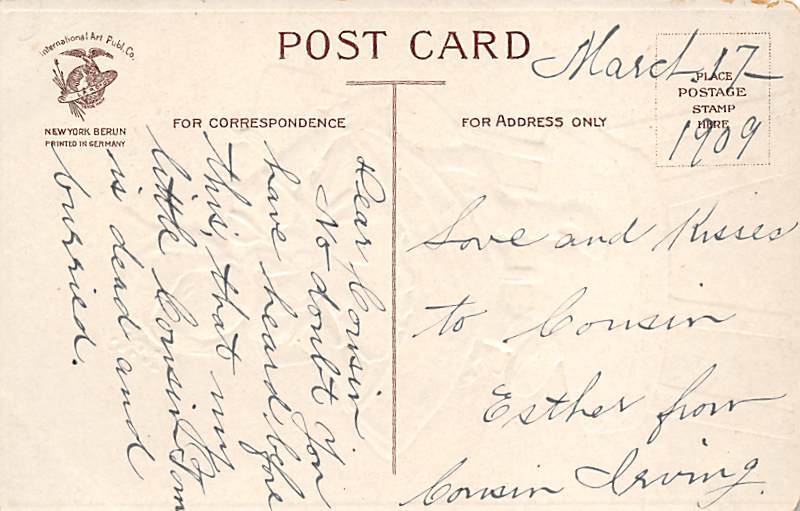 International Art Publ. Co.
NEW YORK BERLIN
PRINTED IN GERMANY
POST CARD
March 17
1909
PLACE
POSTAGE
STAMP
HERE
FOR CORRESPONDENCE
Dear Cousin
No doubt you
have heard before
this, that my
little Cousin Tom
is dead and
burried.
FOR ADDRESS ONLY
Love and Kisses
to Cousin
Esther from
Cousin Irving.